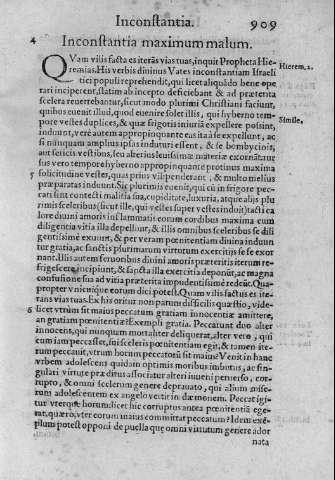 Inconstantia. 909
4 Inconstantia maximum malum.
QVam vilis facta es iterãs vias tuas, inquit Propheta Hieremias. His verbis diuinus Vates inconstantiam Israeli
Hierem. 2.
tici populi reprehendit, qui licet aliquãdo bene ope
rari inciperent, statim ab incepto deficiebant & ad præterita
scelera reuertebantur, sicut modo plurimi Christiani faciunt,
quibus euenit illud, quod euenire solet illis, qui hyberno tem-
Simile.
pore vestes duplices, & quæ frigoris iniuriã expellere possint,
induunt, verè autem appropinquante eas ita à se expellunt, ac
si nunquam amplius ipsas induturi essent, & se bombycinis,
aut sericis vestibus, seu alterius leuissimæ materiæ exornãt: rursus vero tempore hyberno appropinquante protinus maxima
5 solicitudine vestes, quas prius vilipenderant, & multo melius
præparatas induunt. Sic plurimis euenit, qui cũ in frigore peccati sint
diligentia vitia illa depellunt, & illis omnibus sceleribus se diligentissimè exuunt, & per veram pœnitentiam diuina induuntur gratia, ac sanctis plurimarum virtutum exercitijs se se exornant. Illis autem feruoribus diuini amoris præteritis iterum re
frigescere incipiunt, & sancta illa exercitia deponũt, ac magna
confusione sua ad vitia præterita impudentissimè redeũt. Qua
propter vnicuique eorum dici potest. Quam vilis factus es iterans vias tuas. Ex his oritur non parum difficilis quæstio, vide-
6 licet vtrum sit maius peccatum gratiam innocentiæ amittere,
an gratiam pœnitentiæ? Exempli gratia. Peccarunt duo alter
innocens, qui nunquam mortaliter deliquerat, alter vero, qui
cum iam peccasset, sui sceleris pœnitentiam egit, & tamen iterum peccauit, vtrum horum peccatorũ sit maius? Venit in hanc
vrbem adolescens quidam optimis moribus imbutus, ac singulari virtute præditus associatur alteri iuueni peruerso, corrupto, & omni scelerum genere deprauato, qui alium miserum adolescentem ex angelo vertit in dæmonem. Peccat igitur vterque horum: licet hic corruptus antea pœnitentiã egerat, quæro, vter eorum maius committat peccatum? Idem exemplum potest opponi de puella quæ omni virtutum genere ador
nata